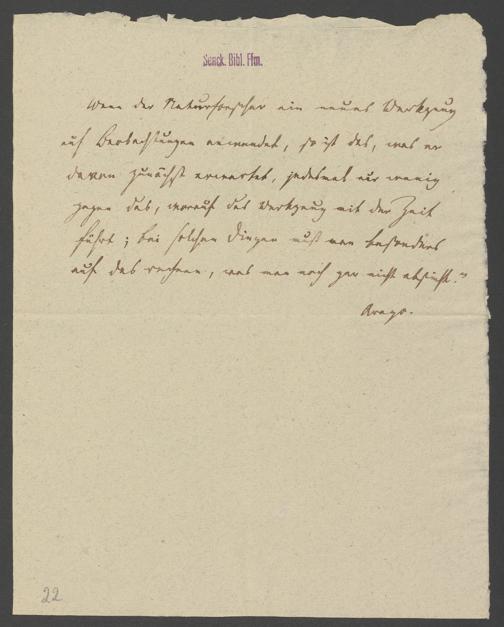 Senck. Bibl. Ffm.
Wenn der Naturforscher ein neues Werkzeug
auf Beobachtungen anwendet, so ist das, was er
davon zunächst erwartet, jedesmal nur wenig
gegen das, worauf das Werkzeug mit der Zeit
führt; bei solchen Dingen muß man besonders
auf das rechnen, was man noch gar nicht absieht."
Arago.
22